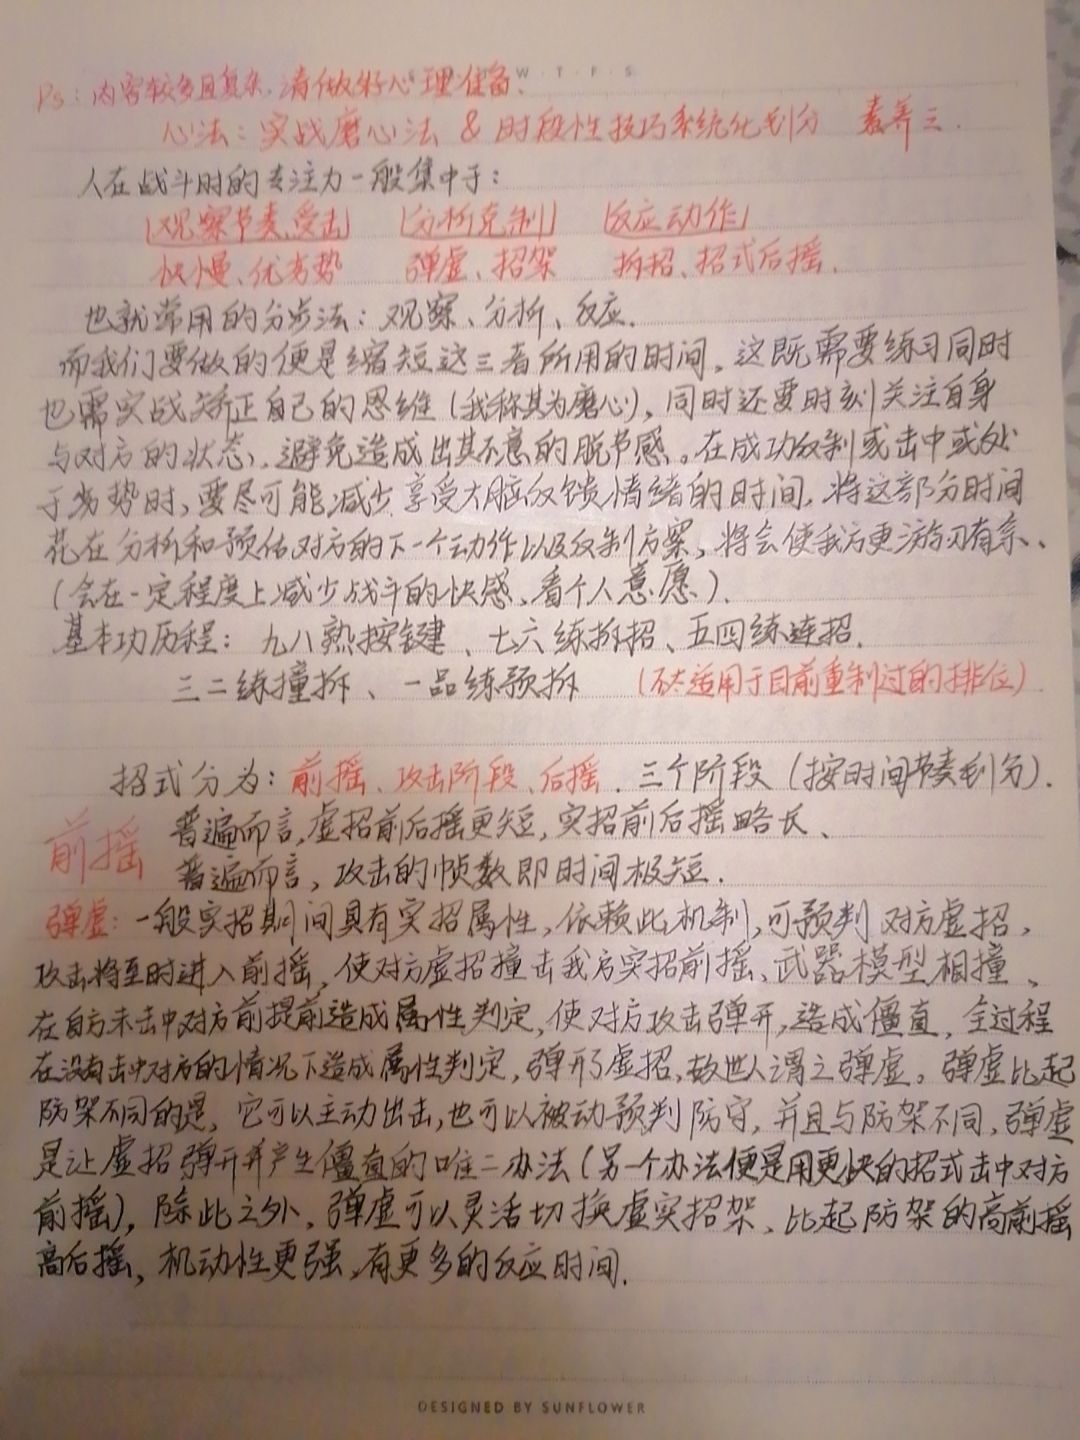 W·T·F·S
Ps：内容较多且复杂，请做好心理准备。
心法：实战磨心法 & 时段性技巧系统化划分 素养三.
人在战斗时的专注力一般集中于：
观察节奏、受击 分析克制 反应动作
快慢、优劣势 弹虚、招架 拆招、招式后摇.
也就常用的分步法：观察、分析、反应.
而我们要做的便是缩短这三者所用的时间。这既需要练习同时
也需实战矫正自己的思维（我称其为磨心），同时还要时刻关注自身
与对方的状态，避免造成出其不意的脱节感。在成功反制或击中或处
于劣势时，要尽可能减少享受大脑反馈情绪的时间，将这部分时间
花在分析和预估对方的下一个动作以及反制方案，将会使我方更游刃有余、
（会在一定程度上减少战斗的快感、看个人意愿）.
基本功历程：九八熟按键、七六练拆招、五四练连招.
三二练撞拆、一品练预拆 （不太适用于目前重制过的排位）
招式分为：前摇、攻击阶段、后摇. 三个阶段（按时间节奏划分）.
前摇 普遍而言，虚招前后摇更短，实招前后摇略长、
普遍而言，攻击的帧数即时间极短.
弹虚：一般实招期间具有实招属性，依赖此机制，可预判对方虚招，
攻击将至时进入前摇，使对方虚招撞击我方实招前摇、武器模型相撞、
在自方未击中对方前提前造成属性判定，使对方攻击弹开，造成僵直，全过程
在没有击中对方的情况下造成属性判定，弹开了虚招，故世人谓之弹虚。弹虚比起
防架不同的是，它可以主动出击，也可以被动预判防守，并且与防架不同，弹虚
是让虚招弹开并产生僵直的唯二办法（另一个办法便是用更快的招式击中对方
前摇），除此之外，弹虚可以灵活切换虚实招架、比起防架的高前摇
高后摇，机动性更强，有更多的反应时间.
DESIGNED BY SUNFLOWER